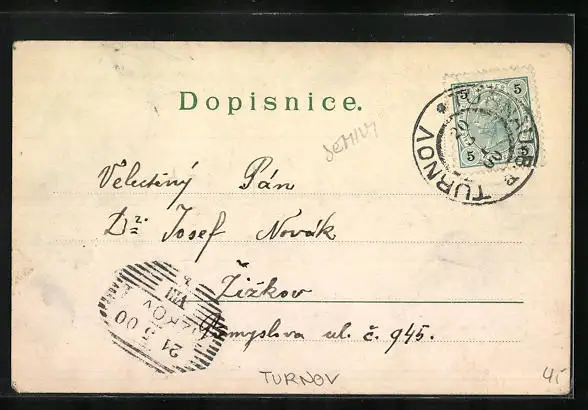 Dopisnice.
SEMILY
5 5
5 5
TURNOV TURNOV
Velectěný Pán
Dr. Josef Novák
Žižkov
Přemyslova ul. č. 945.
ŽIŽKOV
VIII
21
5 00
TURNOV
45